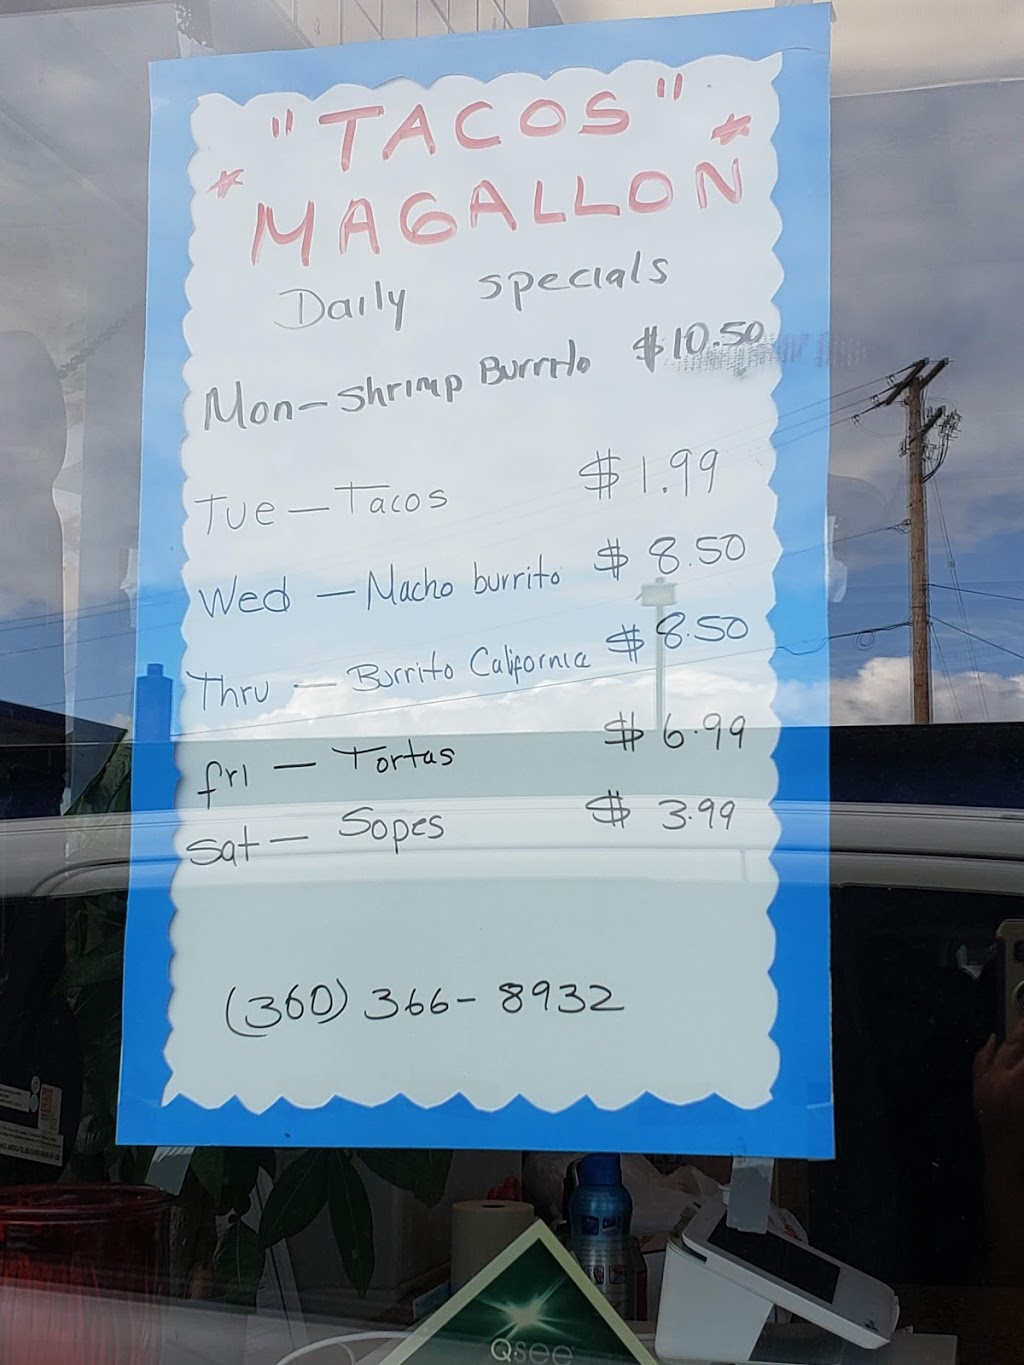 "TACOS"
* MAGALLON *
Daily specials
Mon - Shrimp Burrito $10.50
Tue - Tacos $1.99
Wed - Macho burrito $8.50
Thru - Burrito California $8.50
fri - Tortas $6.99
Sat - Sopes $3.99
(360) 366-8932
Qsee